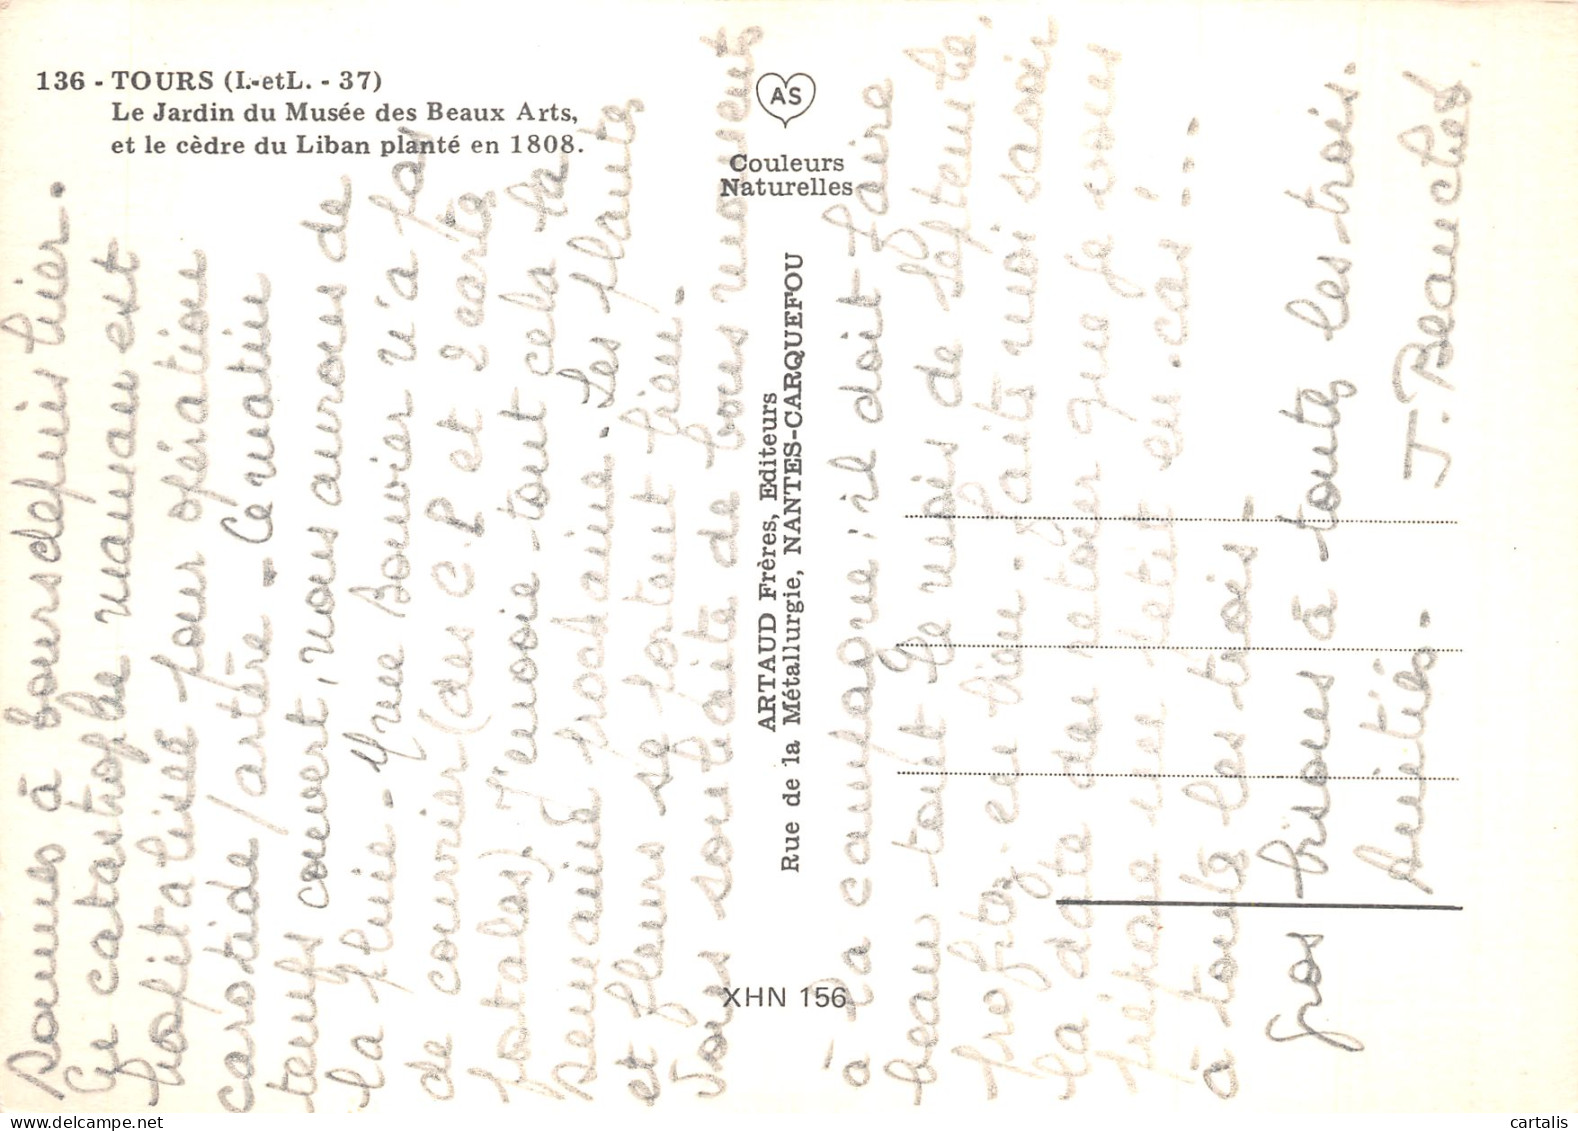 136 - TOURS (I.-etL. - 37)
Le Jardin du Musée des Beaux Arts,
et le cèdre du Liban planté en 1808.
AS
Couleurs
Naturelles
ARTAUD Frères, Editeurs
Rue de la Métallurgie, NANTES-CARQUEFOU
XHN 156
Sommes à Tours depuis hier.
catastrophe maman est
hospitalisée pour opération
carotide/artère - Ce matin
temps couvert, nous aurons de
la pluie - Mme Bouvier n'a pas
de courrier (des C.P et 2 carte
postales). J'envoie tout cela la
semaine prochaine. Les plantes
et fleurs se portent bien.
Vous souhaite de bons moments
à la campagne; il doit faire
beau tout le mois de Septembre
profitez en bien. Faite moi savoir
la date du retour que je vous
prépare un petit en.cas!...
à toute les trois -
gros bisous à toute les trois.
Amitiés.
J. Beauches
cartalis.com